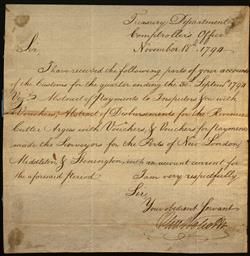 Treasury Department
Comptroller's Office
November 18th 1794
Sir,
I have received the following parts of your accounts
of the Customs for the quarter ending the 30th Septemr 1794
Viz. Abstract of Payments to Inspectors &ca with
Vouchers, Abstract of Disbursements for the Revenue
Cutter Argus with Vouchers, & Vouchers for payments
made the Surveyors for the Ports of New London
Middleton & Stonington, with an account current for
the aforesaid period.
I am very respectfully
Sir,
Your obedient Servant